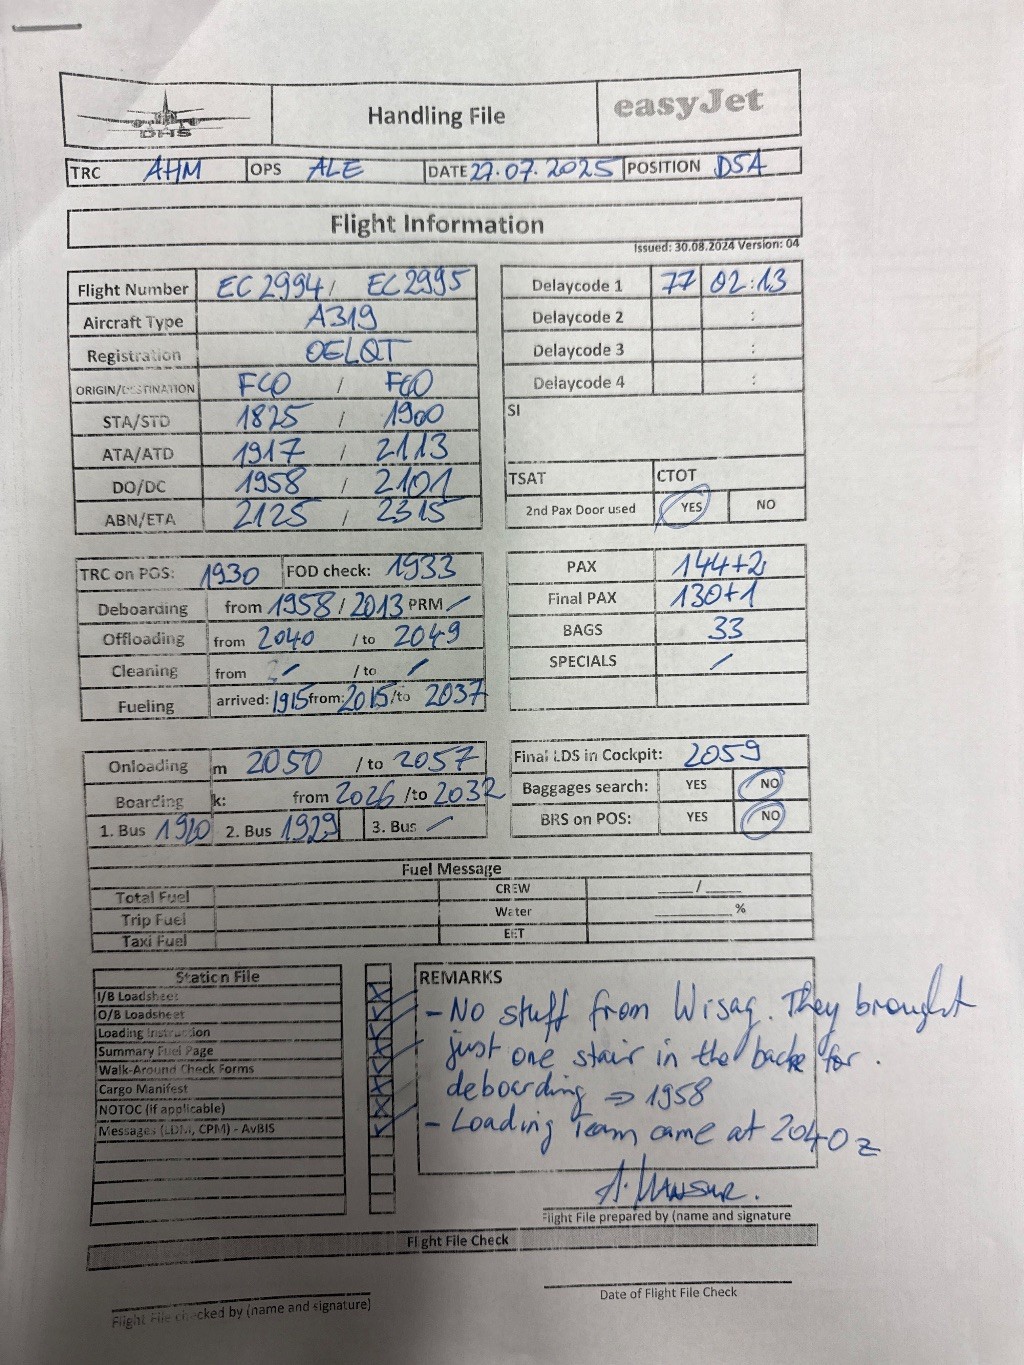 DHS Handling File easyJet
TRC AHM OPS ALE DATE 27.07.2025 POSITION D5A
Flight Information
Issued: 30.08.2024 Version: 04
Flight Number EC2994 / EC2995
Aircraft Type A319
Registration OELQT
ORIGIN/DESTINATION FCO / FCO
STA/STD 1825 / 1900
ATA/ATD 1917 / 2113
DO/DC 1958 / 2101
ABN/ETA 2125 / 2315
Delaycode 1 77 02:13
Delaycode 2 :
Delaycode 3 :
Delaycode 4 :
SI
TSAT CTOT
2nd Pax Door used YES NO
TRC on POS: 1930 FOD check: 1933
Deboarding from 1958 / 2013 PRM /
Offloading from 2040 / to 2049
Cleaning from / / to /
Fueling arrived: 1915 from: 2015 /to 2037
PAX 144+2
Final PAX 130+1
BAGS 33
SPECIALS /
Onloading m 2050 / to 2057
Boarding k: from 2026 /to 2032
1. Bus 1920 2. Bus 1929 3. Bus /
Final LDS in Cockpit: 2059
Baggages search: YES NO
BRS on POS: YES NO
Fuel Message
Total Fuel CREW ____/____
Trip Fuel Water ________%
Taxi Fuel EET
Station File
I/B Loadsheet
O/B Loadsheet
Loading Instruction
Summary Fuel Page
Walk-Around Check Forms
Cargo Manifest
NOTOC (if applicable)
Messages (LDM, CPM) - AvBIS
REMARKS
- No stuff from Wisag. They brought
just one stair in the backe for.
deboarding => 1958
- Loading Team came at 2040z
A. MANSUR.
Flight File prepared by (name and signature
Flight File Check
Flight File checked by (name and signature)
Date of Flight File Check